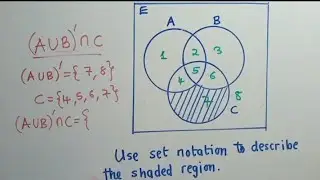 E
(AUB)'∩C
A B
(AUB)'={7,8}
1 2 3
5
4 6
C={4,5,6,7}
7 8
C
(AUB)'∩C={
Use set notation to describe
the shaded region.